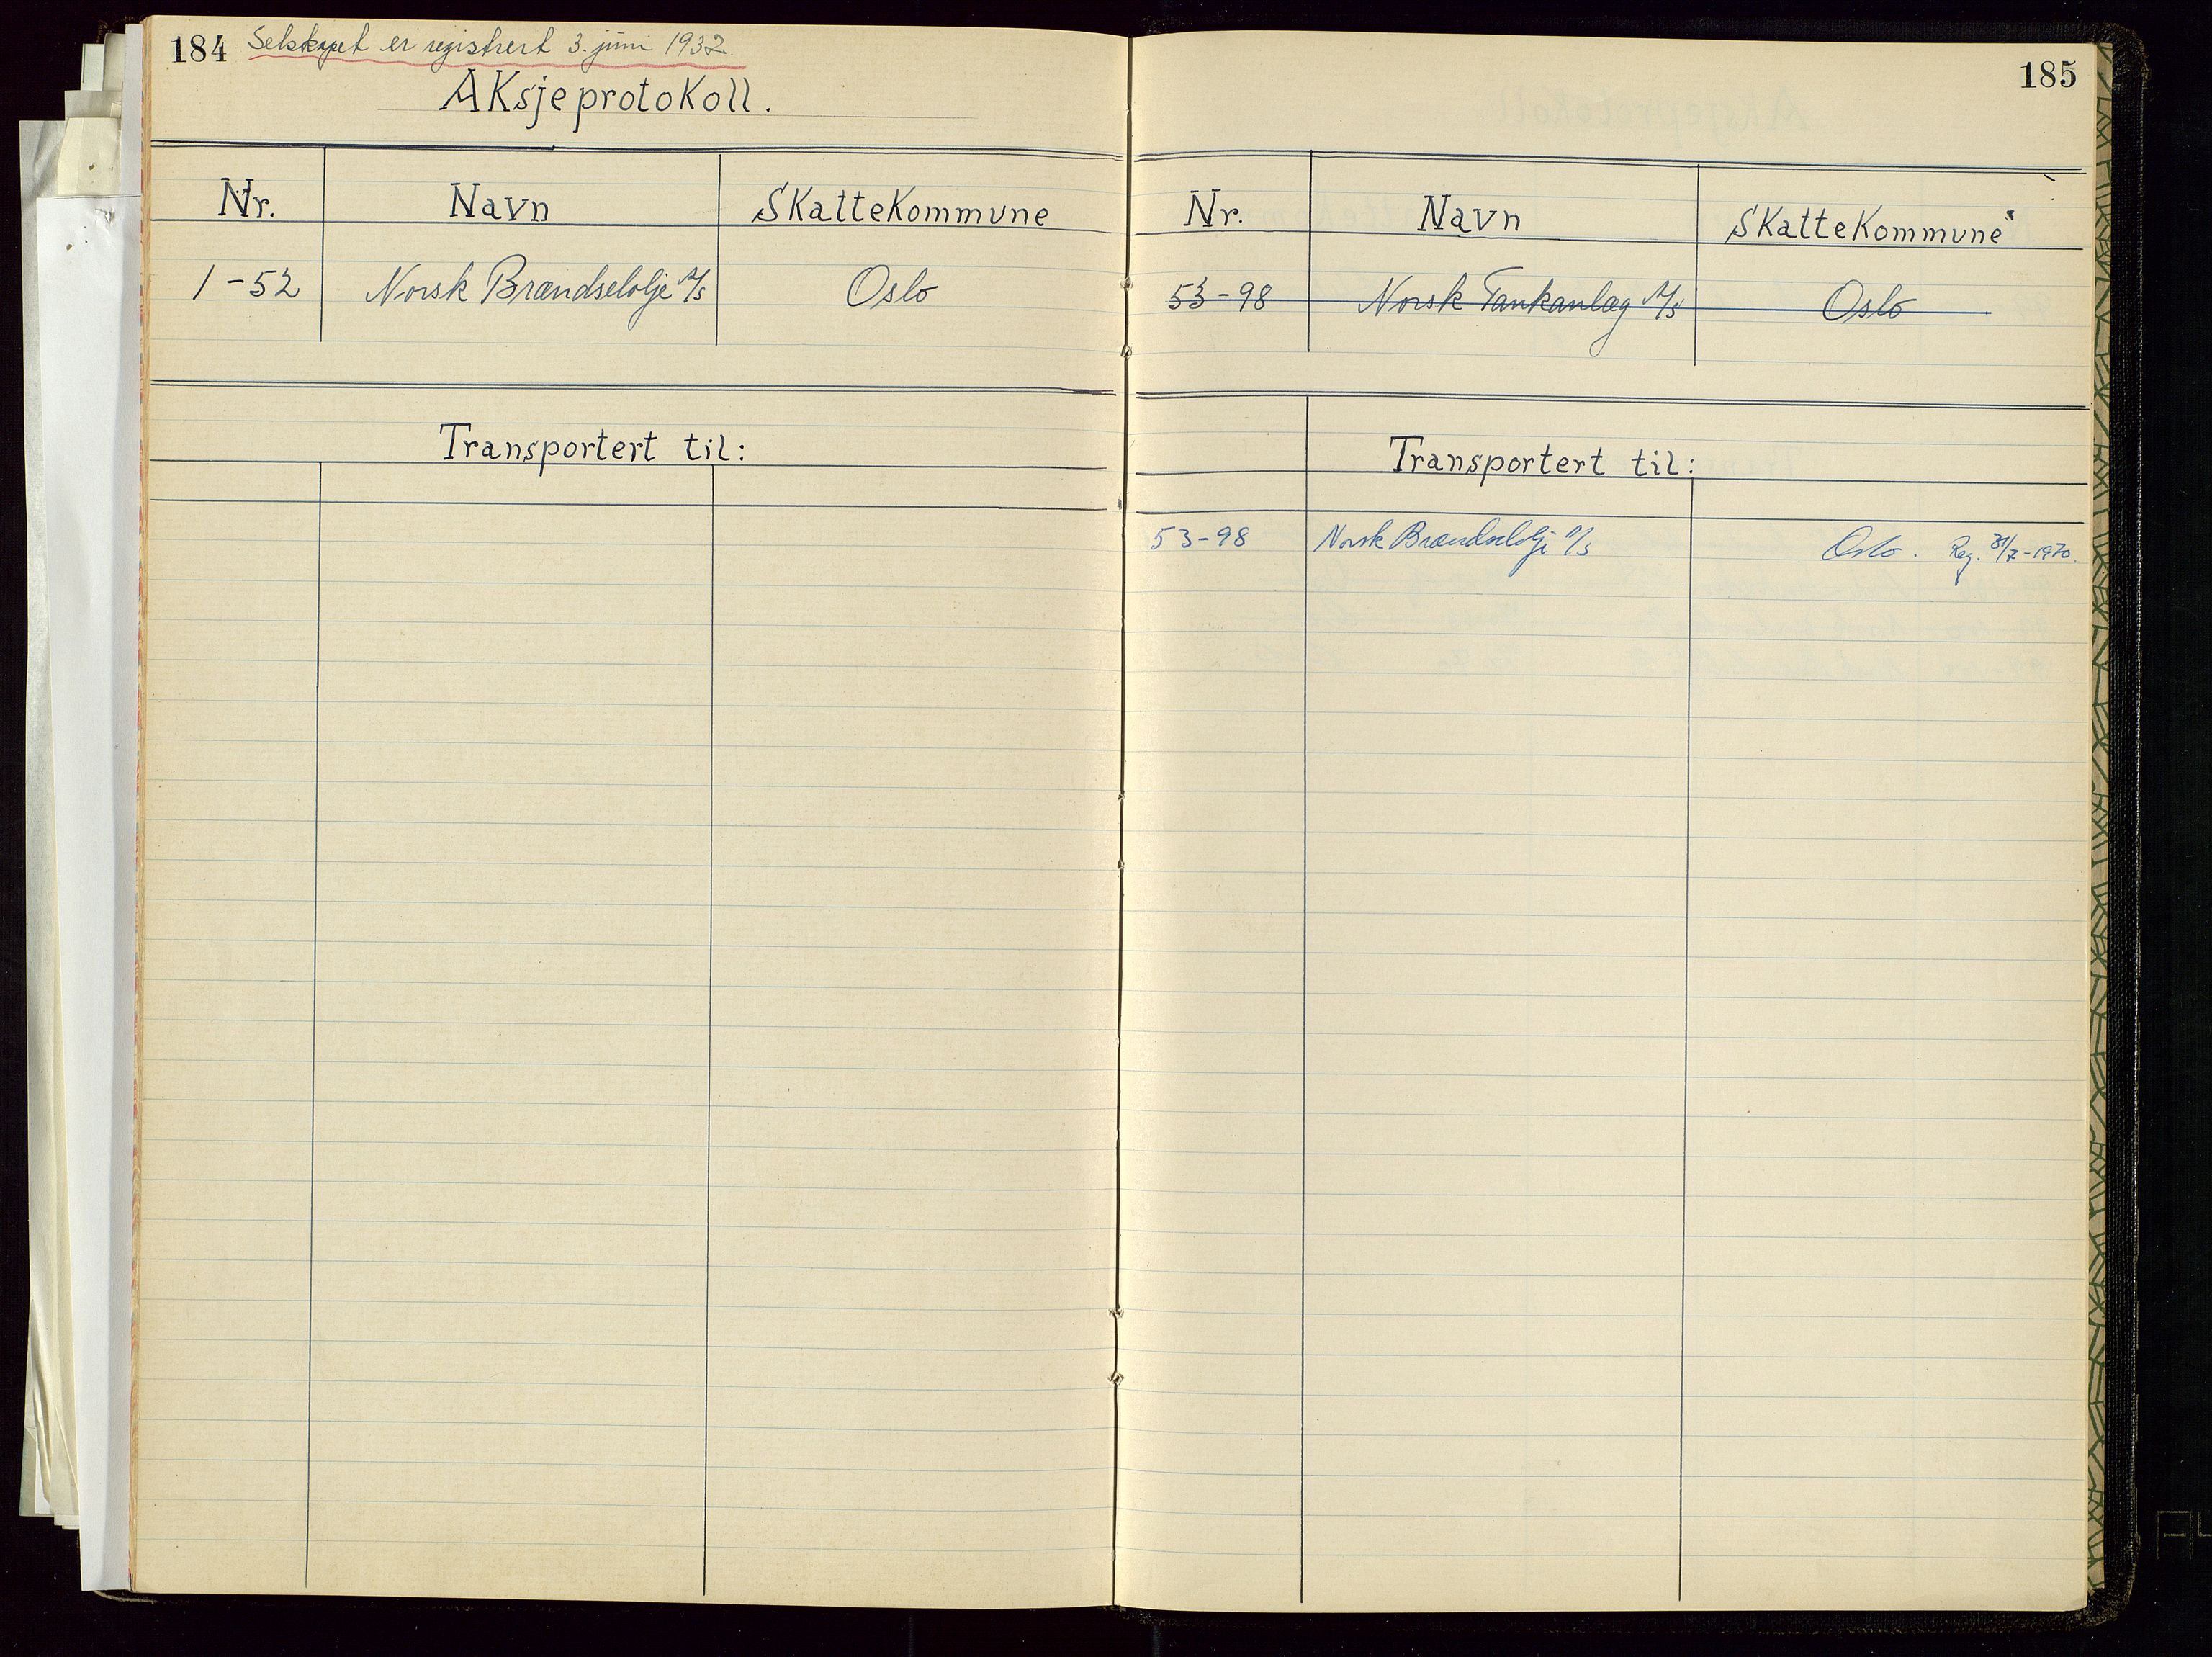 184 Selskapet er registrert 3. juni 1932.
Aksjeprotokoll.
Nr. Navn Skattekommune
1-52 Norsk Brændselolje A/S Oslo
Transportert til:
185
Nr. Navn Skattekommune
53-98 Norsk Tankanlæg A/S Oslo
Transportert til:
53-98 Norsk Brændselolje A/S Oslo. Reg. 31/7-1970.